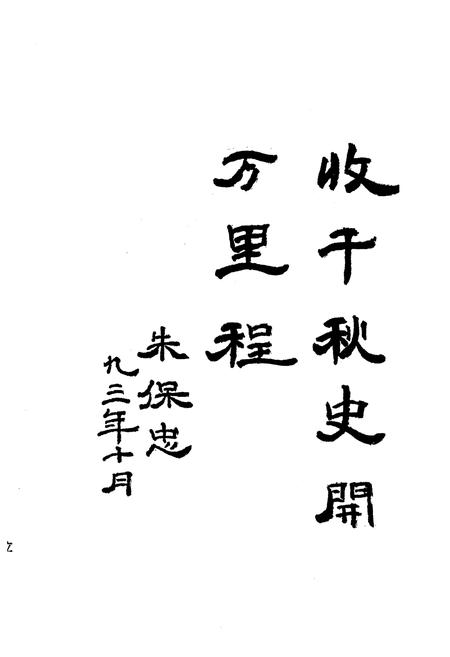 收千秋史開
万里程
朱保忠
九三年十月